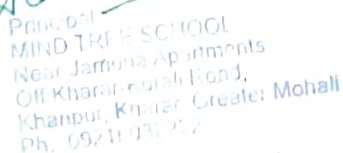 Principal
MIND TREE SCHOOL
Near Jamuna Apartments
Off Kharar-Kurali Road,
Khanpur, Kharar, Greater Mohali
Ph.